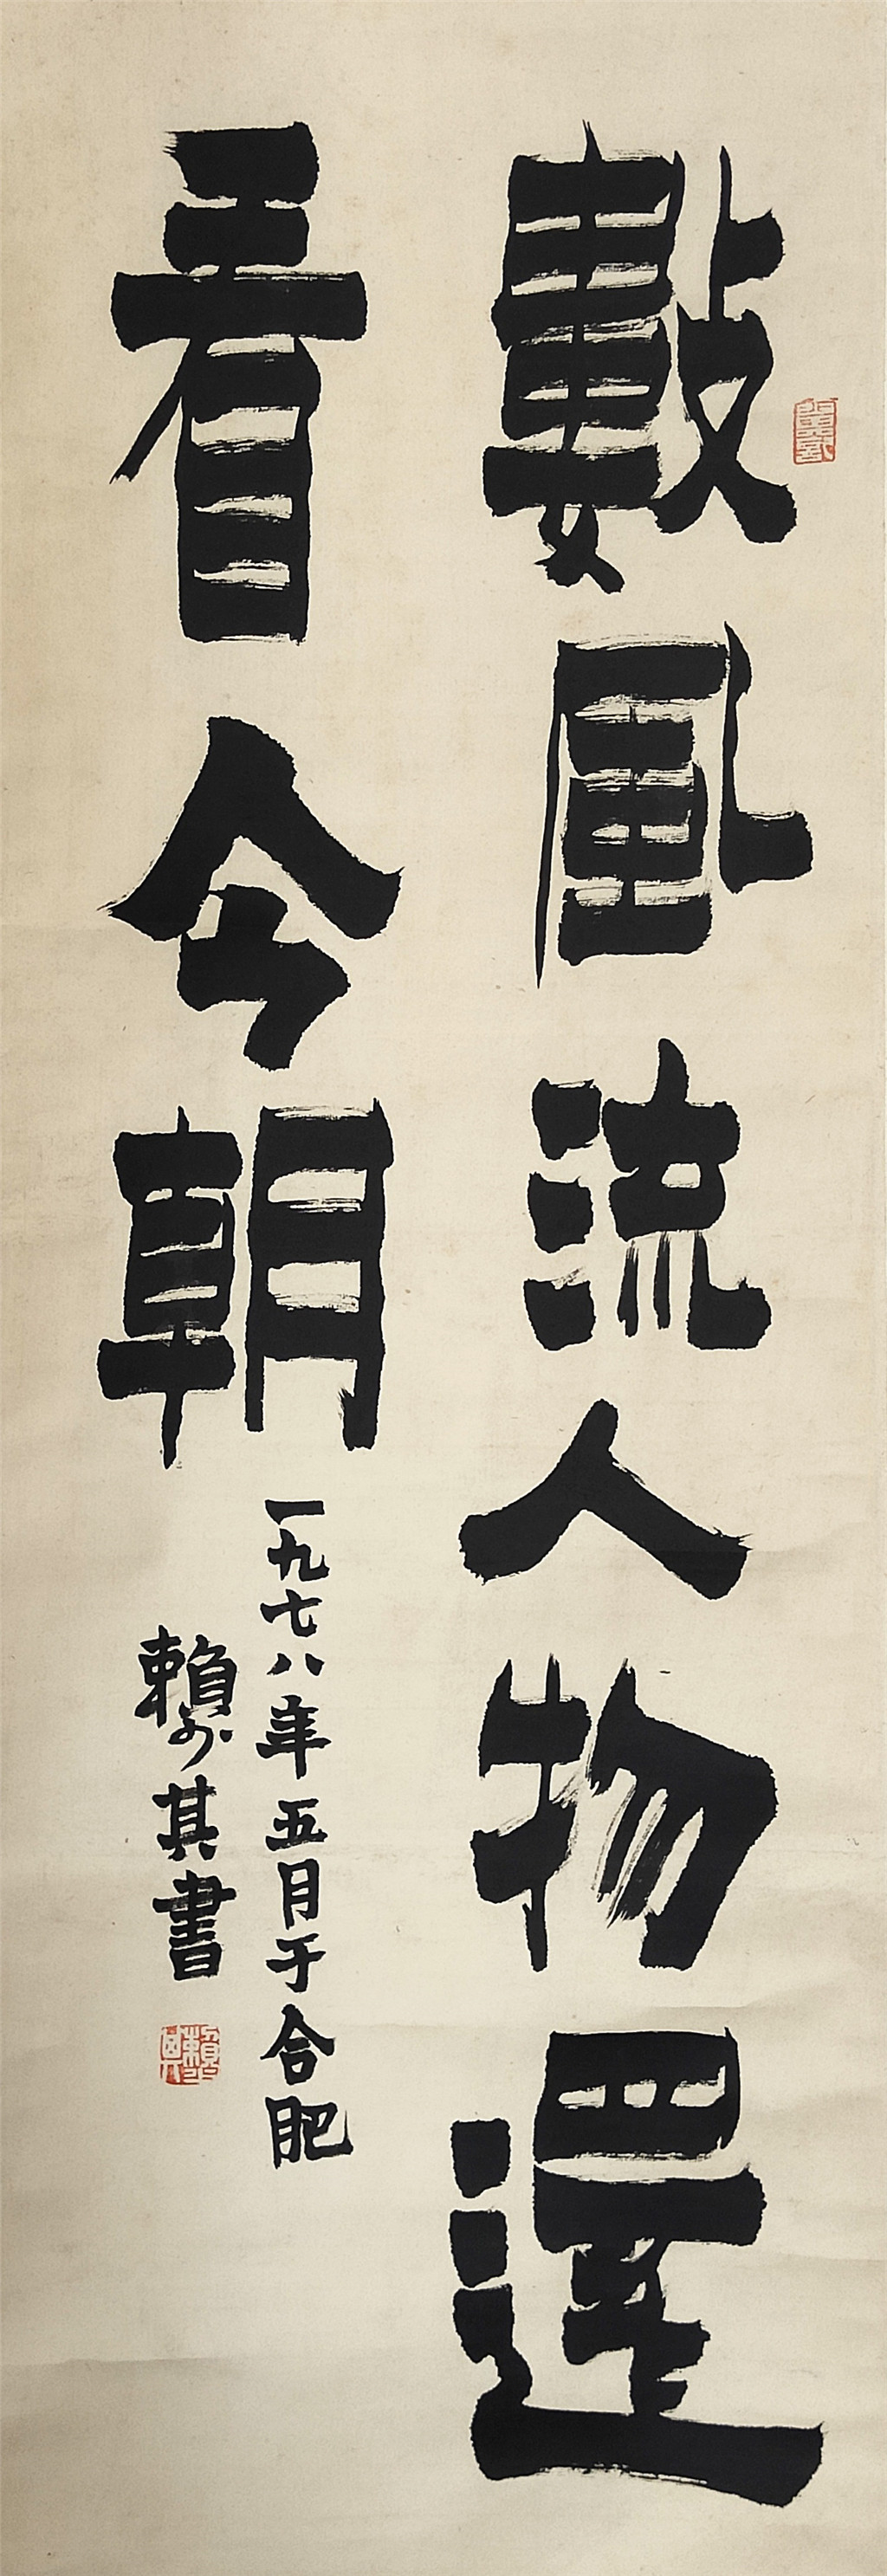 數風流人物還
看今朝
一九七八年五月于合肥
賴少其書